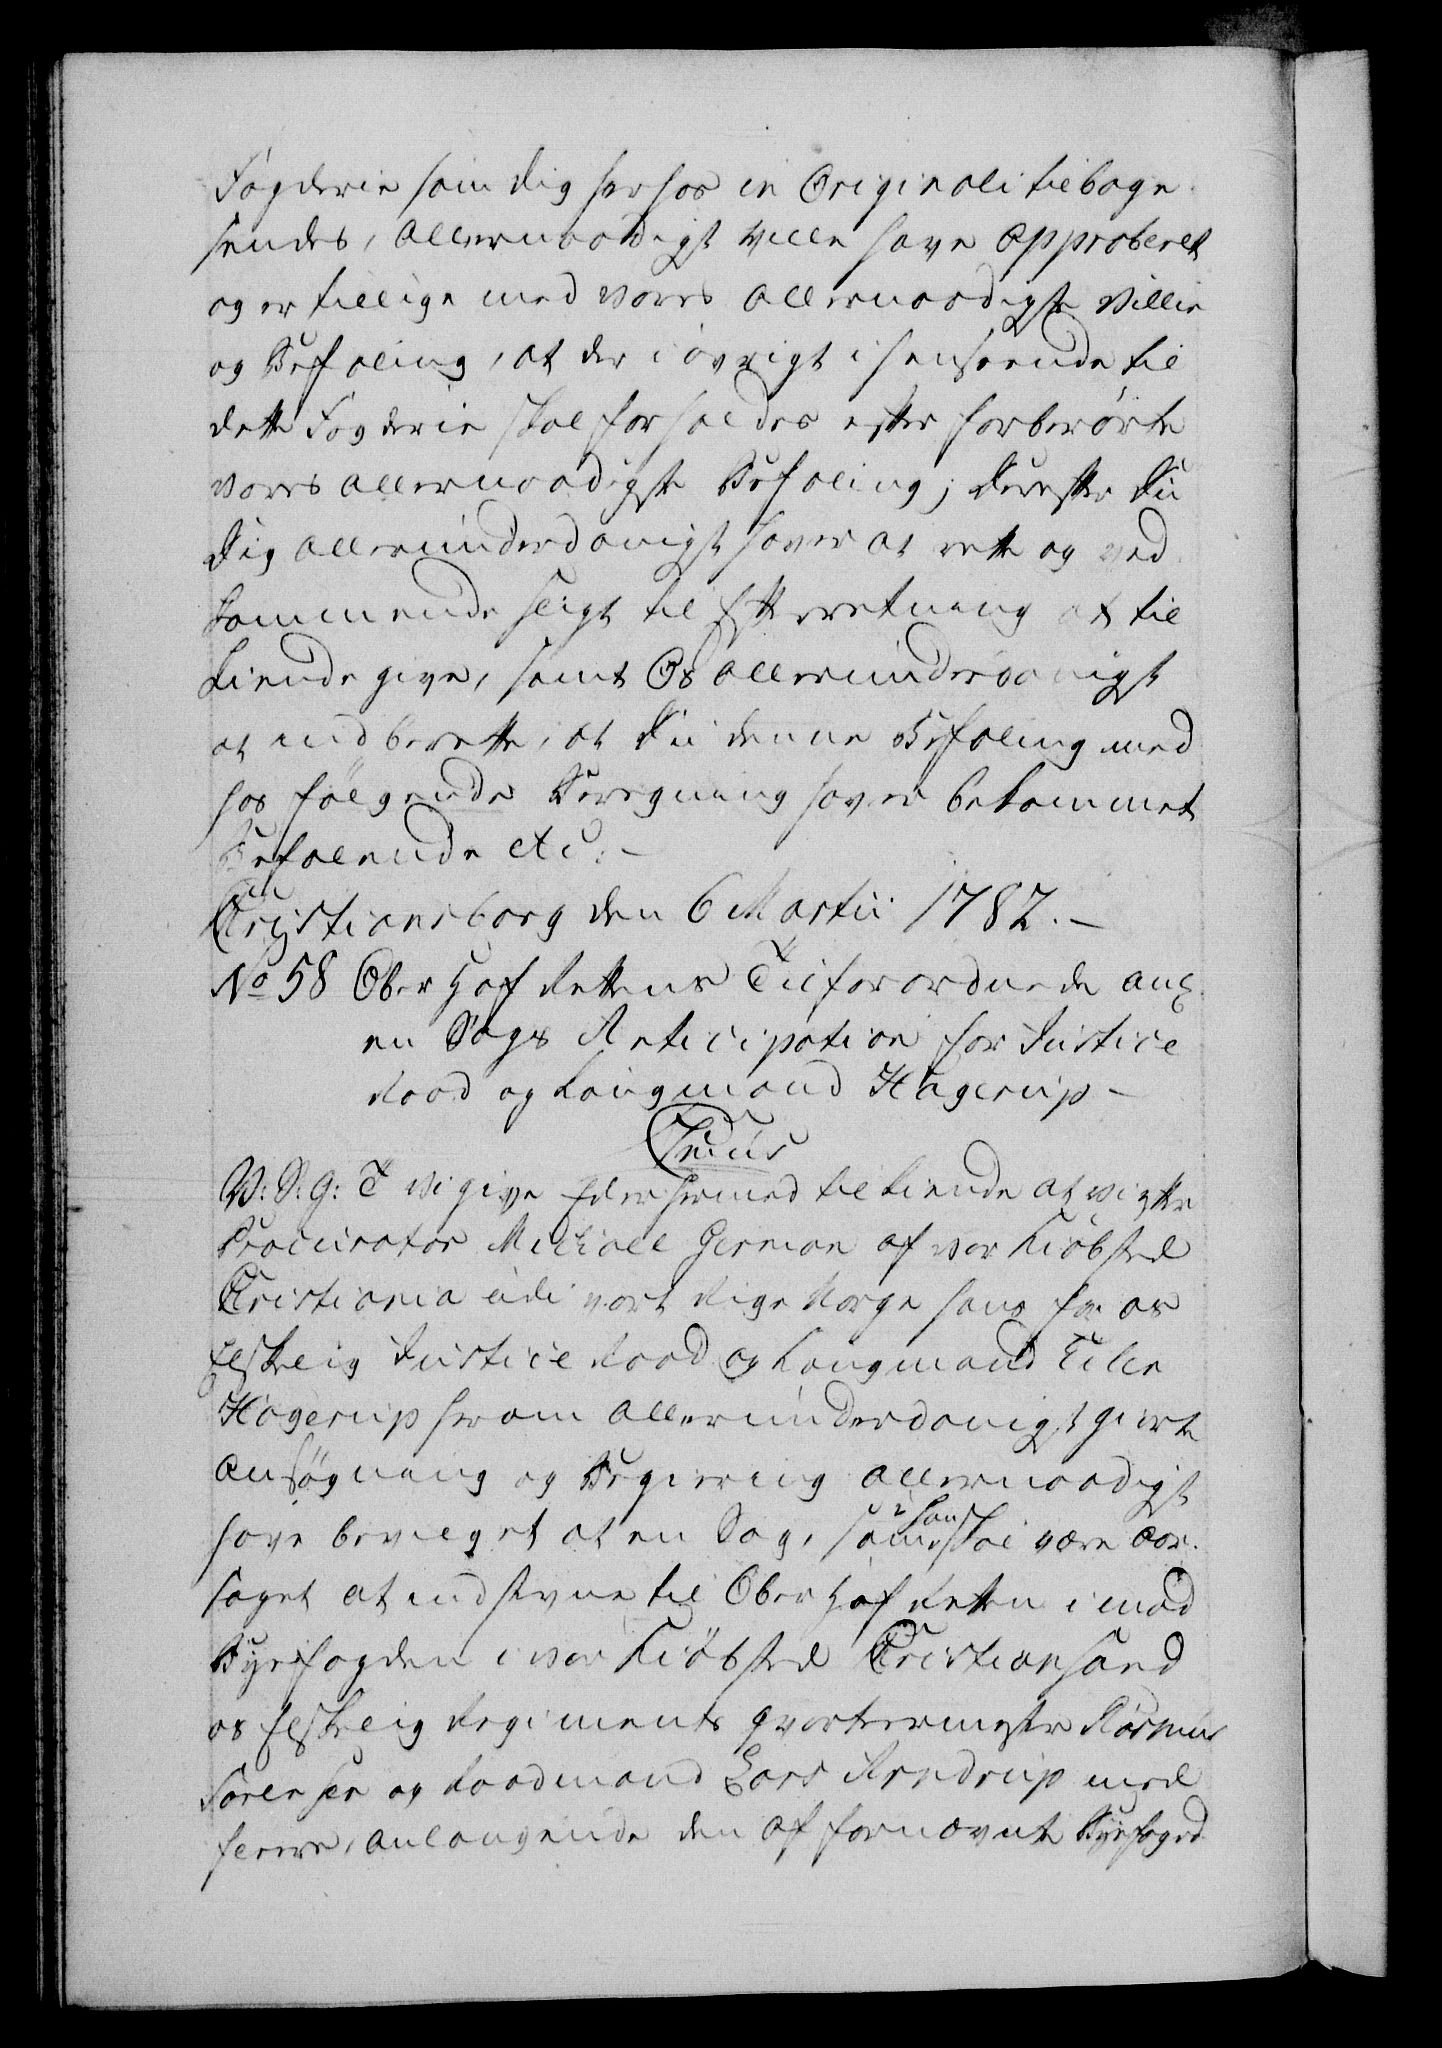 Fogderie som dig herhos in Originali tilbage
sendes, allernaadigst ville have approberet
og er tillige med vores allernaadigste Villie
og Befaling, at der i øvrigt i henseende til
dette Fogderie skal forholdes efter forberørte
vores allernaadigste Befaling; Derefter Du
Dig allerunderdanigst haver at rette og ved
kommende sligt til Efterretning at til
kiende give, samt Os allerunderdanigst
at indberette, at Du denne Befaling med
hos følgende Beregning haver bekommet
Befalende etc: –
Christiansborg den 6 Martii 1782. –
No 58 Ober Hof Rettens Tilforordnede ang
en Sags Anticipation for Justice
Raad og Laugmand Hagerup –
V: S: G: T Vi give Eder hermed tilkiende at vi efter
Procurator Michael German af vor Kiøbsted
Christiania udi vort Rige Norge hans for os
Elskelig Justice Raad og Laugmand Eiler
Hagerup herom allerunderdanigst giorte
Ansøgning og Begiering allernaadigst
have bevilget at en Sag, som han skal være aar-
saget at indstevne til Ober Hof Retten imod
Byefogden i vor Kiøbsted Christiansand
os Elskelig Regiments Qvarteermester Rasmus
Sørensen og Raadmand Lars Arndrup med
fleere, anlangende den af fornævnte Byefoged